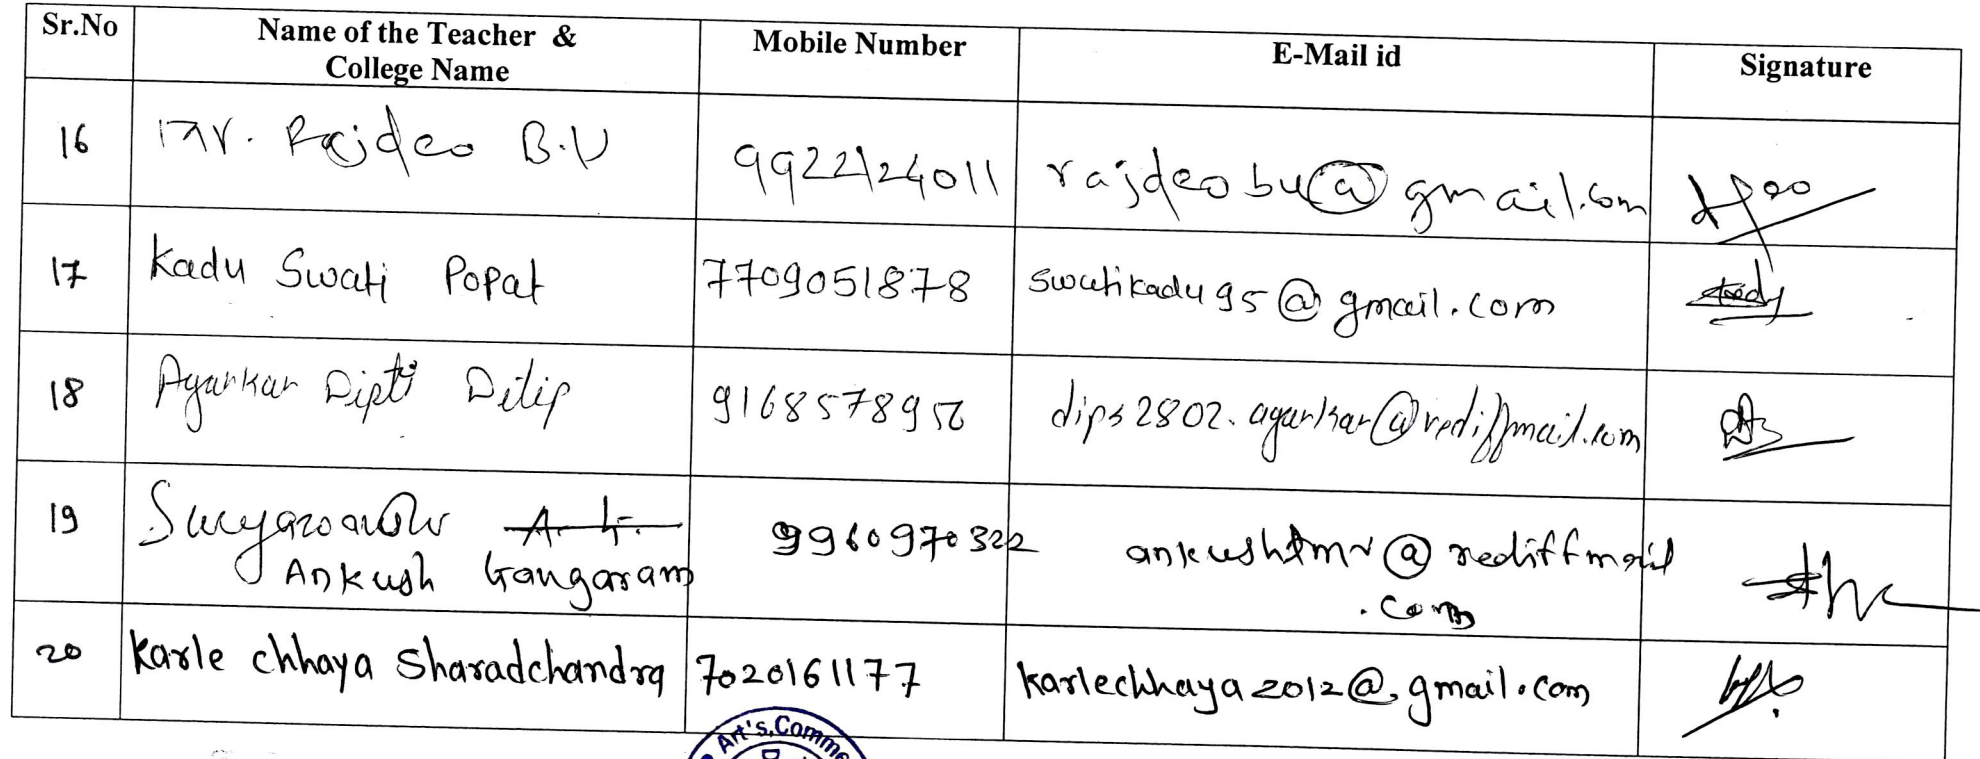 Sr.No Name of the Teacher & College Name Mobile Number E-Mail id Signature
16 Mr. Rajdeo B.U 9922124011 rajdeobu@gmail.com
17 Kadu Swati Popat 7709051878 swatikadu95@gmail.com
18 Agarkar Dipti Dilip 9168578956 dips2802.agarkar@rediffmail.com
19 Ankush Gangaram 9960970322 ankushtmv@rediffmail.com
20 Karle chhaya Sharadchandra 7020161177 karlechhaya2012@gmail.com
Art's, Comme